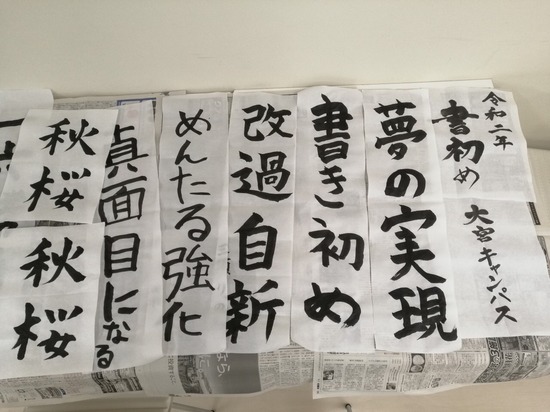 令和二年
書初め
大宮キャンパス
夢の実現
書き初め
改過自新
めんたる強化
真面目になる
秋桜
秋桜